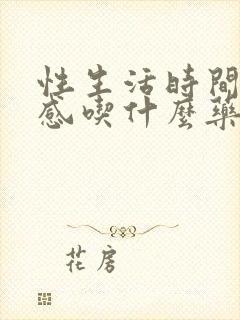 性生活時間
感喫什麼藥
花房